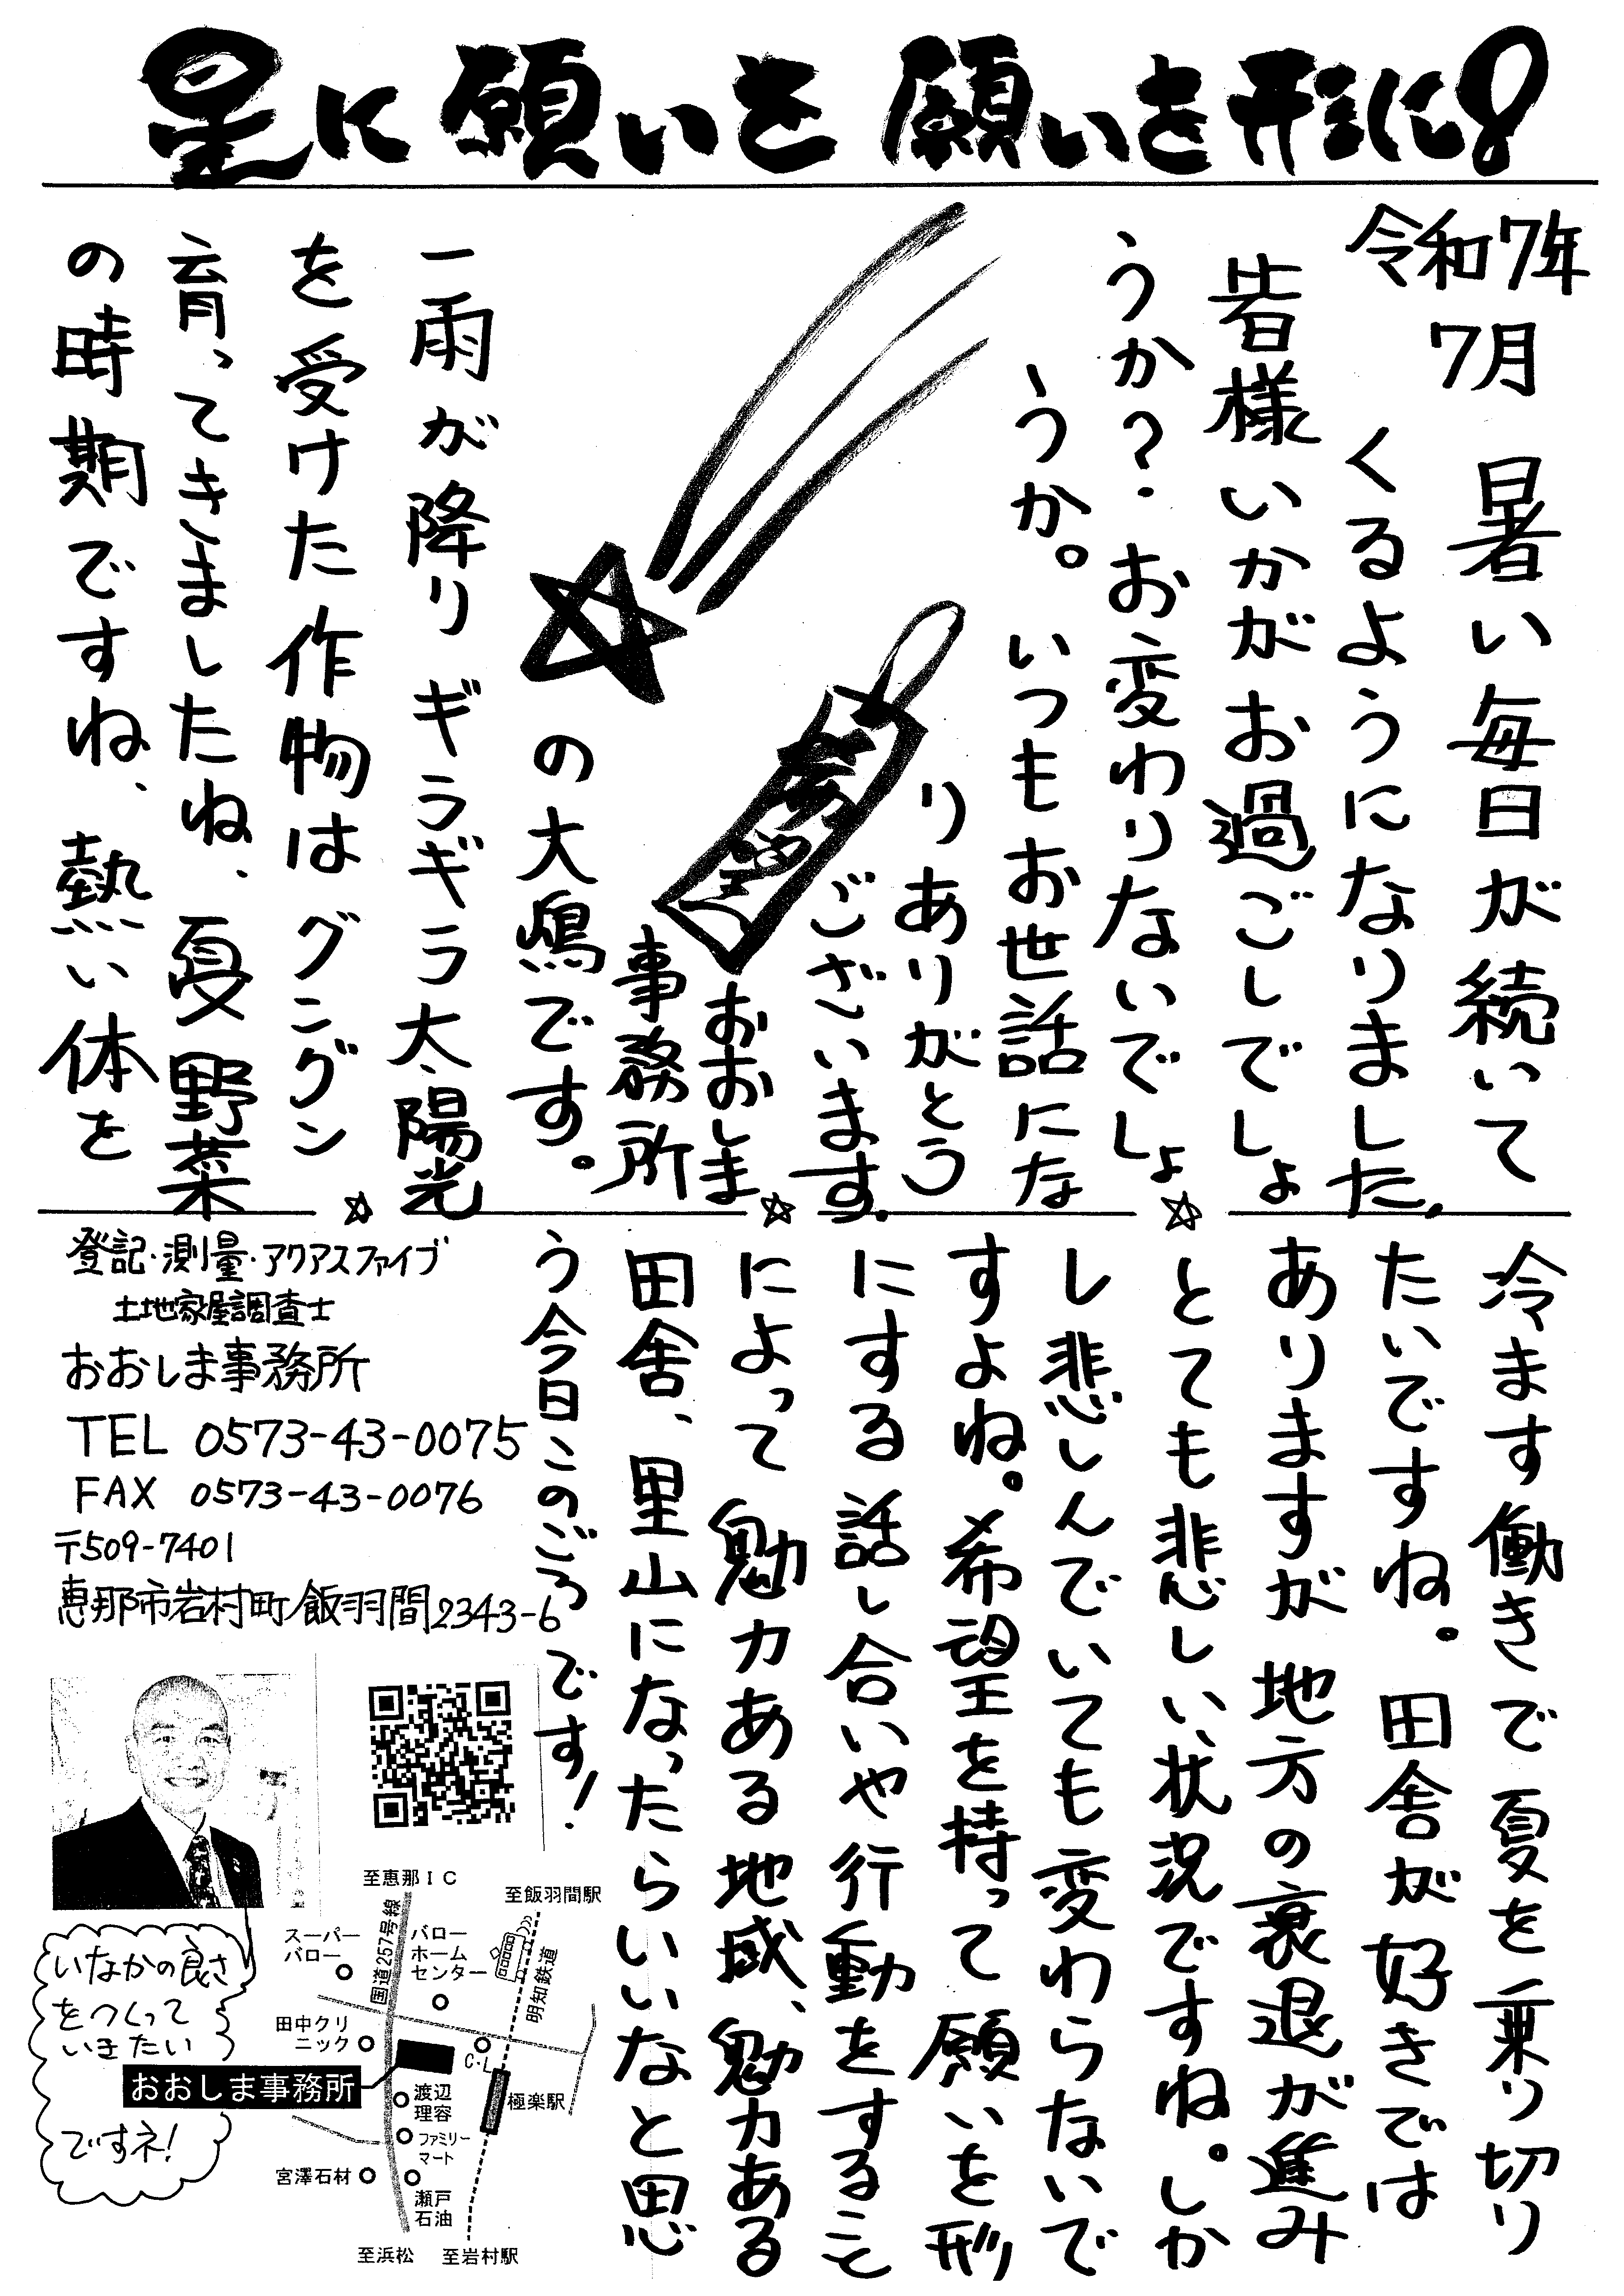 星に願いを 願いを形に!
令和7年
7月
暑い毎日が続いて
くるようになりました。
皆様いかがお過ごしでしょ
うか?お変わりないでしょ
うか。いつもお世話にな
りありがとう
ございます。
おおしま
事務所
の大嶋です。
一雨が降りギラギラ太陽光
を受けた作物はグングン
育ってきましたね、夏野菜
の時期ですね、熱い体を
冷ます働きで夏を乗り切り
たいですね。田舎が好きでは
ありますが地方の衰退が進み
とても悲しい状況ですね。しか
し悲しんでいても変わらないで
すよね。希望を持って願いを形
にする話し合いや行動をすること
によって魅力ある地域、魅力ある
田舎、里山になったらいいなと思
う今日このごろです!
登記・測量・アクアスファイブ
土地家屋調査士
おおしま事務所
TEL 0573-43-0075
FAX 0573-43-0076
〒509-7401
恵那市岩村町飯羽間2343-6
いなかの良さ
をつくって
いきたい
ですネ!
至恵那IC
至飯羽間駅
国道257号線
スーパー
バロー
バロー
ホーム
センター
明知鉄道
田中クリ
ニック
C・L
おおしま事務所
渡辺
理容
極楽駅
ファミリー
マート
宮澤石材
瀬戸
石油
至浜松
至岩村駅